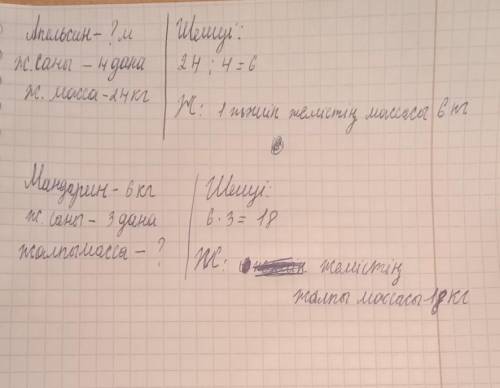 Апельсин - ? м
Ж. саны - 4 дана
Ж. масса - 24 кг
Шешуі:
24 : 4 = 6
Ж: 1 жәшік жемістің массасы 6 кг
Мандарин - 6 кг
Ж саны - 3 дана
жалпы масса - ?
Шешуі:
6 · 3 = 18
Ж: жемістің
жалпы массасы 18 кг